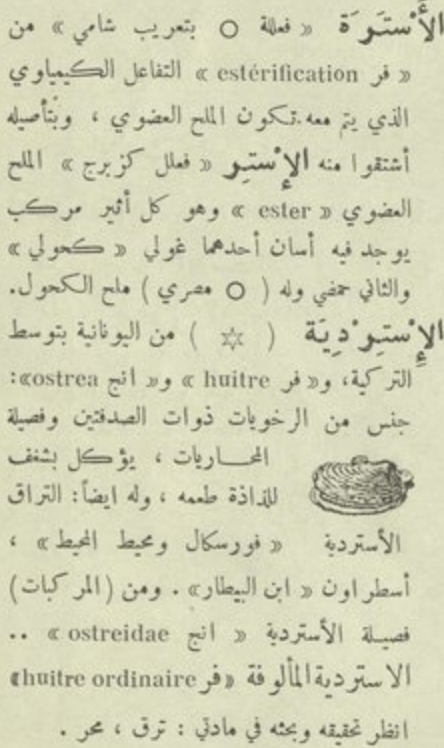 الأَسْتَرَة « فعللة O بتعريب شامي » من
« فر estérification » التفاعل الكيمياوي
الذي يتم معه تكون الملح العضوي ، وبتأصيله
أشتقوا منه الإِسْتِر « فعلل كزبرج » الملح
العضوي « ester » وهو كل أثير مركب
يوجد فيه أسان أحدهما غولي « كحولي »
والثاني حمضي وله ( O مصري ) ملح الكحول.
الإِسْتِرِدْيَة ( ✡ ) من اليونانية بتوسط
التركية، و« فر huitre » و« انج ostrea»:
جنس من الرخويات ذوات الصدفتين وفصيلة
المحاريات ، يؤكل بشغف
للذاذة طعمه ، وله ايضاً: التراق
الأستردية « فورسكال ومحيط المحيط » ،
أسطراون « ابن البيطار» . ومن (المركبات)
فصيلة الأستردية « انج ostreidae » ..
الاستردية المألوفة «فر huitre ordinaire»
انظر تحقيقه وبحثه في مادتي : ترق ، محر .